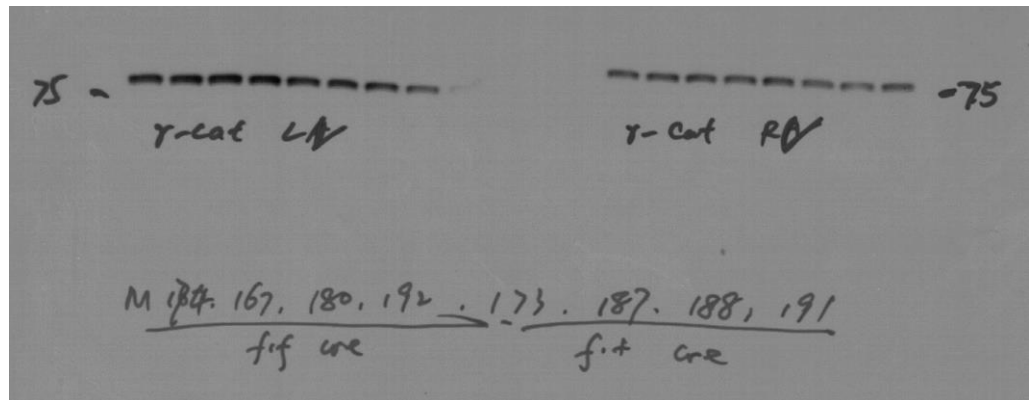 75 - -75
γ-cat LV γ-cat RV
M 167. 180. 192. 173. 187. 188, 191
f.f cre f.+ cre